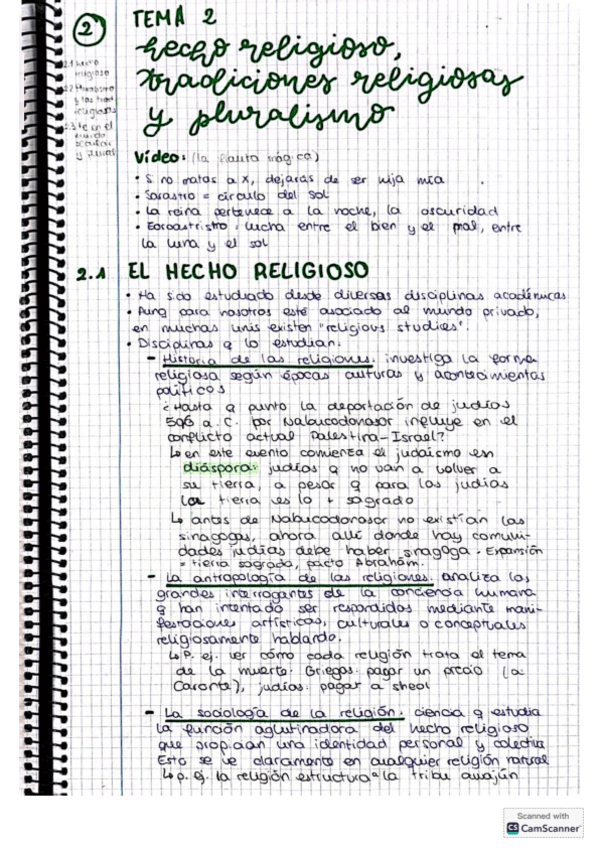 2
TEMA 2
hecho religioso,
tradiciones religiosas
y pluralismo
2.1 Hecho
religioso
y las trad
religiosas
2.3 Fe en el
mundo
secular
y plural
Vídeo: (la flauta mágica)
• Si no matas a x, dejarás de ser hija mía
• Sarastro = círculo del sol
• La reina pertenece a la noche, la oscuridad
• lucha entre el bien y el mal, entre
la luna y el sol
2.1 EL HECHO RELIGIOSO
• Ha sido estudiado desde diversas disciplinas académicas
• Aunq para nosotros esté asociado al mundo privado,
en muchas unis existen "religious studies".
• Disciplinas q lo estudian:
- Historia de las religiones. investiga la forma
religiosa según épocas culturas y acontecimientos
políticos
¿Hasta q punto la deportación de judíos
596 a.C. por Nabucodonosor influye en el
conflicto actual Palestina-Israel?
↳ en este evento comienza el judaísmo en
diáspora: judíos q no van a volver a
su tierra, a pesar q para los judíos
la tierra es lo + sagrado
↳ antes de Nabucodonosor no existían las
sinagogas, ahora allí donde hay comuni-
dades judías debe haber sinagoga. Expansión
= tierra sagrada, pacto Abraham.
- La antropología de las religiones. analiza los
grandes interrogantes de la conciencia humana
q han intentado ser respondidos mediante mani-
festaciones artísticas, culturales o conceptuales
religiosamente hablando.
↳ P. ej. ver cómo cada religión trata el tema
de la muerte. Griegos. pagar un precio (a
Caronte), judíos. pagar a sheol
- La sociología de la religión. ciencia q estudia
la función aglutinadora del hecho religioso
que propician una identidad personal y colectiva
Esto se ve claramente en cualquier religión natural
↳ p. ej. la religión estructura a la tribu awajún
Scanned with
CS CamScanner